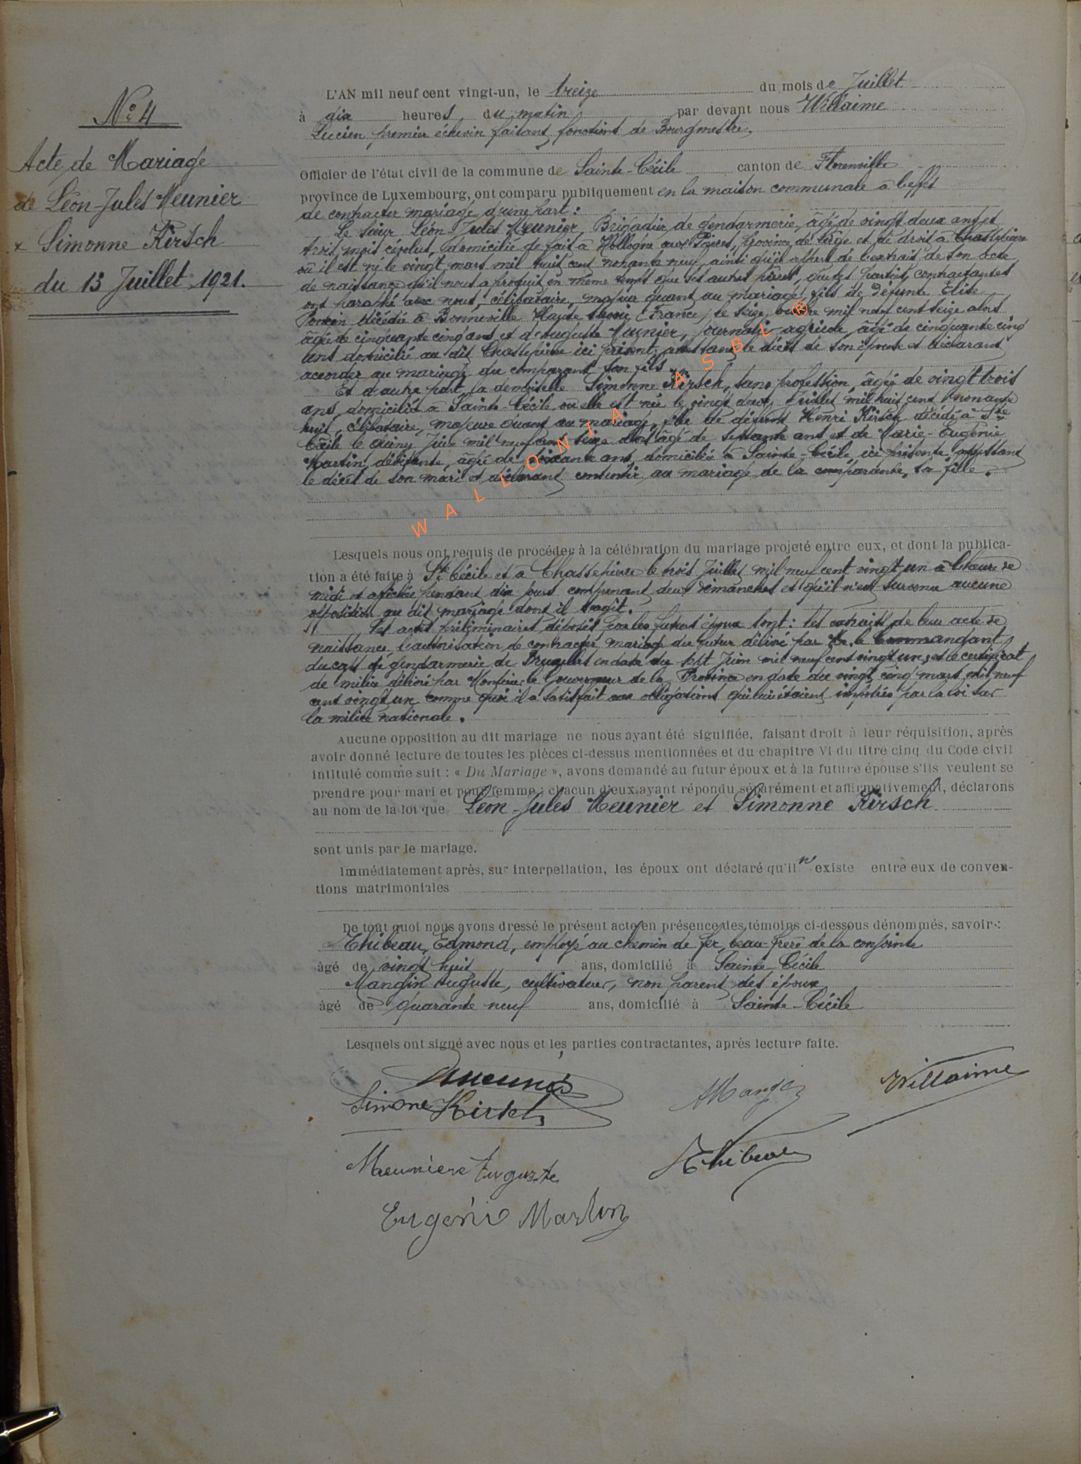 N° 4
Acte de Mariage
de Léon-Jules Meunier
& Simonne Kirsch
du 13 Juillet 1921.
L'AN mil neuf cent vingt-un, le treize du mois de Juillet
à dix heures du matin, par devant nous Willaime
Lucien, premier échevin faisant fonctions de Bourgmestre,
Officier de l'état civil de la commune de Sainte-Cécile canton de Florenville
province de Luxembourg, ont comparu publiquement en la maison communale à l'effet
de contracter mariage d'une part :
Le sieur Léon Jules Meunier, Brigadier de gendarmerie, âgé de vingt deux ans et
trois mois révolus, domicilié de fait à Hollogne aux Pierres, province de Liège et de droit à Chassepierre
où il est né le vingt mars mil huit cent nonante neuf, ainsi qu'il appert de l'extrait de son acte
de naissance qu'il nous a produit en même temps que les autres pièces, qu'les parties contractantes
ont paraphé avec nous, célibataire, majeur quant au mariage, fils de défunte Elise
Poncin décédée à Bonneville Haute Savoie (France) le seize mil neuf cent seize alors
âgée de cinquante cinq ans et d'Auguste Meunier, journalier agricole, âgé de cinquante cinq
ans domicilié au dit Chassepierre ici présent, attestant le décès de son épouse et déclarant
accorder au mariage du comparant son fils.
Et d'autre part, la demoiselle Simonne Kirsch, sans profession, âgée de vingt trois
ans, domiciliée à Sainte-Cécile où elle est née le vingt deux Juillet mil huit cent nonante
huit, célibataire, majeure quant au mariage, fille de défunt Henri Kirsch décédé à Ste
Cécile le quinze Juin mil neuf cent seize alors âgé de septante ans et de Marie-Eugénie
Martin débitante, âgée de soixante ans, domiciliée à Sainte-Cécile, ici présente, attestant
le décès de son mari et déclarant consentir au mariage de la comparante, sa fille.
Lesquels nous ont requis de procéder à la célébration du mariage projeté entre eux, et dont la publica-
tion a été faite à Ste Cécile et à Chassepierre le trois Juillet mil neuf cent vingt un à l'heure de
midi et affichée pendant dix jours comprenant deux dimanches et qu'il n'est survenu aucune
opposition au dit mariage dont il s'agit.
Les actes préliminaires déposés par les futurs époux sont : les extraits de leur acte de
naissance, l'autorisation de contracter mariage du futur délivré par Mr. le Commandant
du corps de gendarmerie de Bruxelles en date du sept Juin mil neuf cent vingt un, et le certificat
de milice délivré par Monsieur le Gouverneur de la Province en date du vingt cinq mars mil neuf
cent vingt un comme quoi il a satisfait aux obligations qui lui étaient imposées par la loi sur
la milice nationale.
Aucune opposition au dit mariage ne nous ayant été signifiée, faisant droit à leur réquisition, après
avoir donné lecture de toutes les pièces ci-dessus mentionnées et du chapitre VI du titre cinq du Code civil
intitulé comme suit : « Du Mariage », avons demandé au futur époux et à la future épouse s'ils veulent se
prendre pour mari et pour femme ; chacun d'eux ayant répondu séparément et affirmativement, déclarons
au nom de la loi que Léon-Jules Meunier et Simonne Kirsch
sont unis par le mariage.
Immédiatement après, sur interpellation, les époux ont déclaré qu'il n'existe entre eux de conven-
tions matrimoniales
De tout quoi nous avons dressé le présent acte en présence des témoins ci-dessous dénommés, savoir :
Thibeau, Edmond, employé au chemin de fer, beau-frère de la conjointe
âgé de vingt huit ans, domicilié à Sainte Cécile
Mangin Auguste, cultivateur, non parent des époux
âgé de quarante neuf ans, domicilié à Sainte-Cécile
Lesquels ont signé avec nous et les parties contractantes, après lecture faite.
Simone Kirsch
Willaime
Meuniere Auguste
Thibeau
Eugénie Martin
WALLONIA ASBL ®